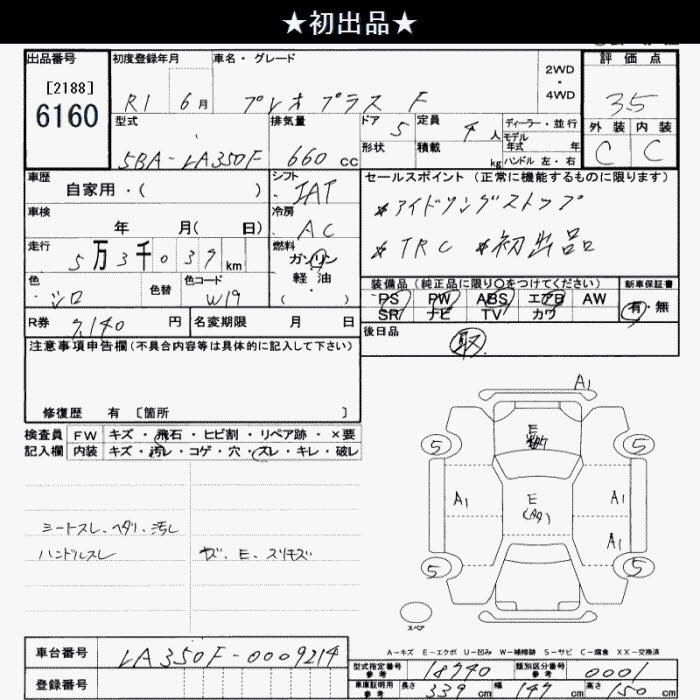 ★初出品★
出品番号 初度登録年月 車名・グレード 評価点
2WD
・
4WD
[2188]
6160
R1 6月 プレオプラス F
35
型式 排気量 ドア 5 定員 4人 ディーラー・並行
モデル年式 年
外装 内装
5BA-LA350F 660cc 形状 積載 kg ハンドル 左・右
C C
車歴 シフト セールスポイント(正常に機能するものに限ります)
自家用・( ) IAT
*アイドリングストップ
車検 冷房
年 月( 日) AC
*TRC *初出品
走行 燃料
5万3千039km ガソリン
軽油
・( )
色 色替 色コード
シロ W19
装備品(純正品に限り○をつけてください) 新車保証書
PS PW ABS エアB AW 有・無
SR ナビ TV カワ
R券 7,140円 名変期限 月 日
後日品
取
注意事項申告欄(不具合内容等は具体的に記入して下さい)
修復歴 有 [箇所 ]
検査員 FW キズ・飛石・ヒビ割・リペア跡・×要
記入欄 内装 キズ・汚レ・コゲ・穴・スレ・キレ・破レ
A1
E
5 5
A1 E A1
A1
5 5
シートスレ、ヘタリ、汚レ
ハンドルスレ
キズ、E、スリキズ
スペア
A-キズ E-エクボ U-凹み W-補修跡 S-サビ C-腐食 XX-交換済
車台番号 LA350F-0009214
型式指定番号 参考 18740 類別区分番号 参考 0001
登録番号
車庫証明用 参考 長さ 339cm 幅 147cm 高さ cm